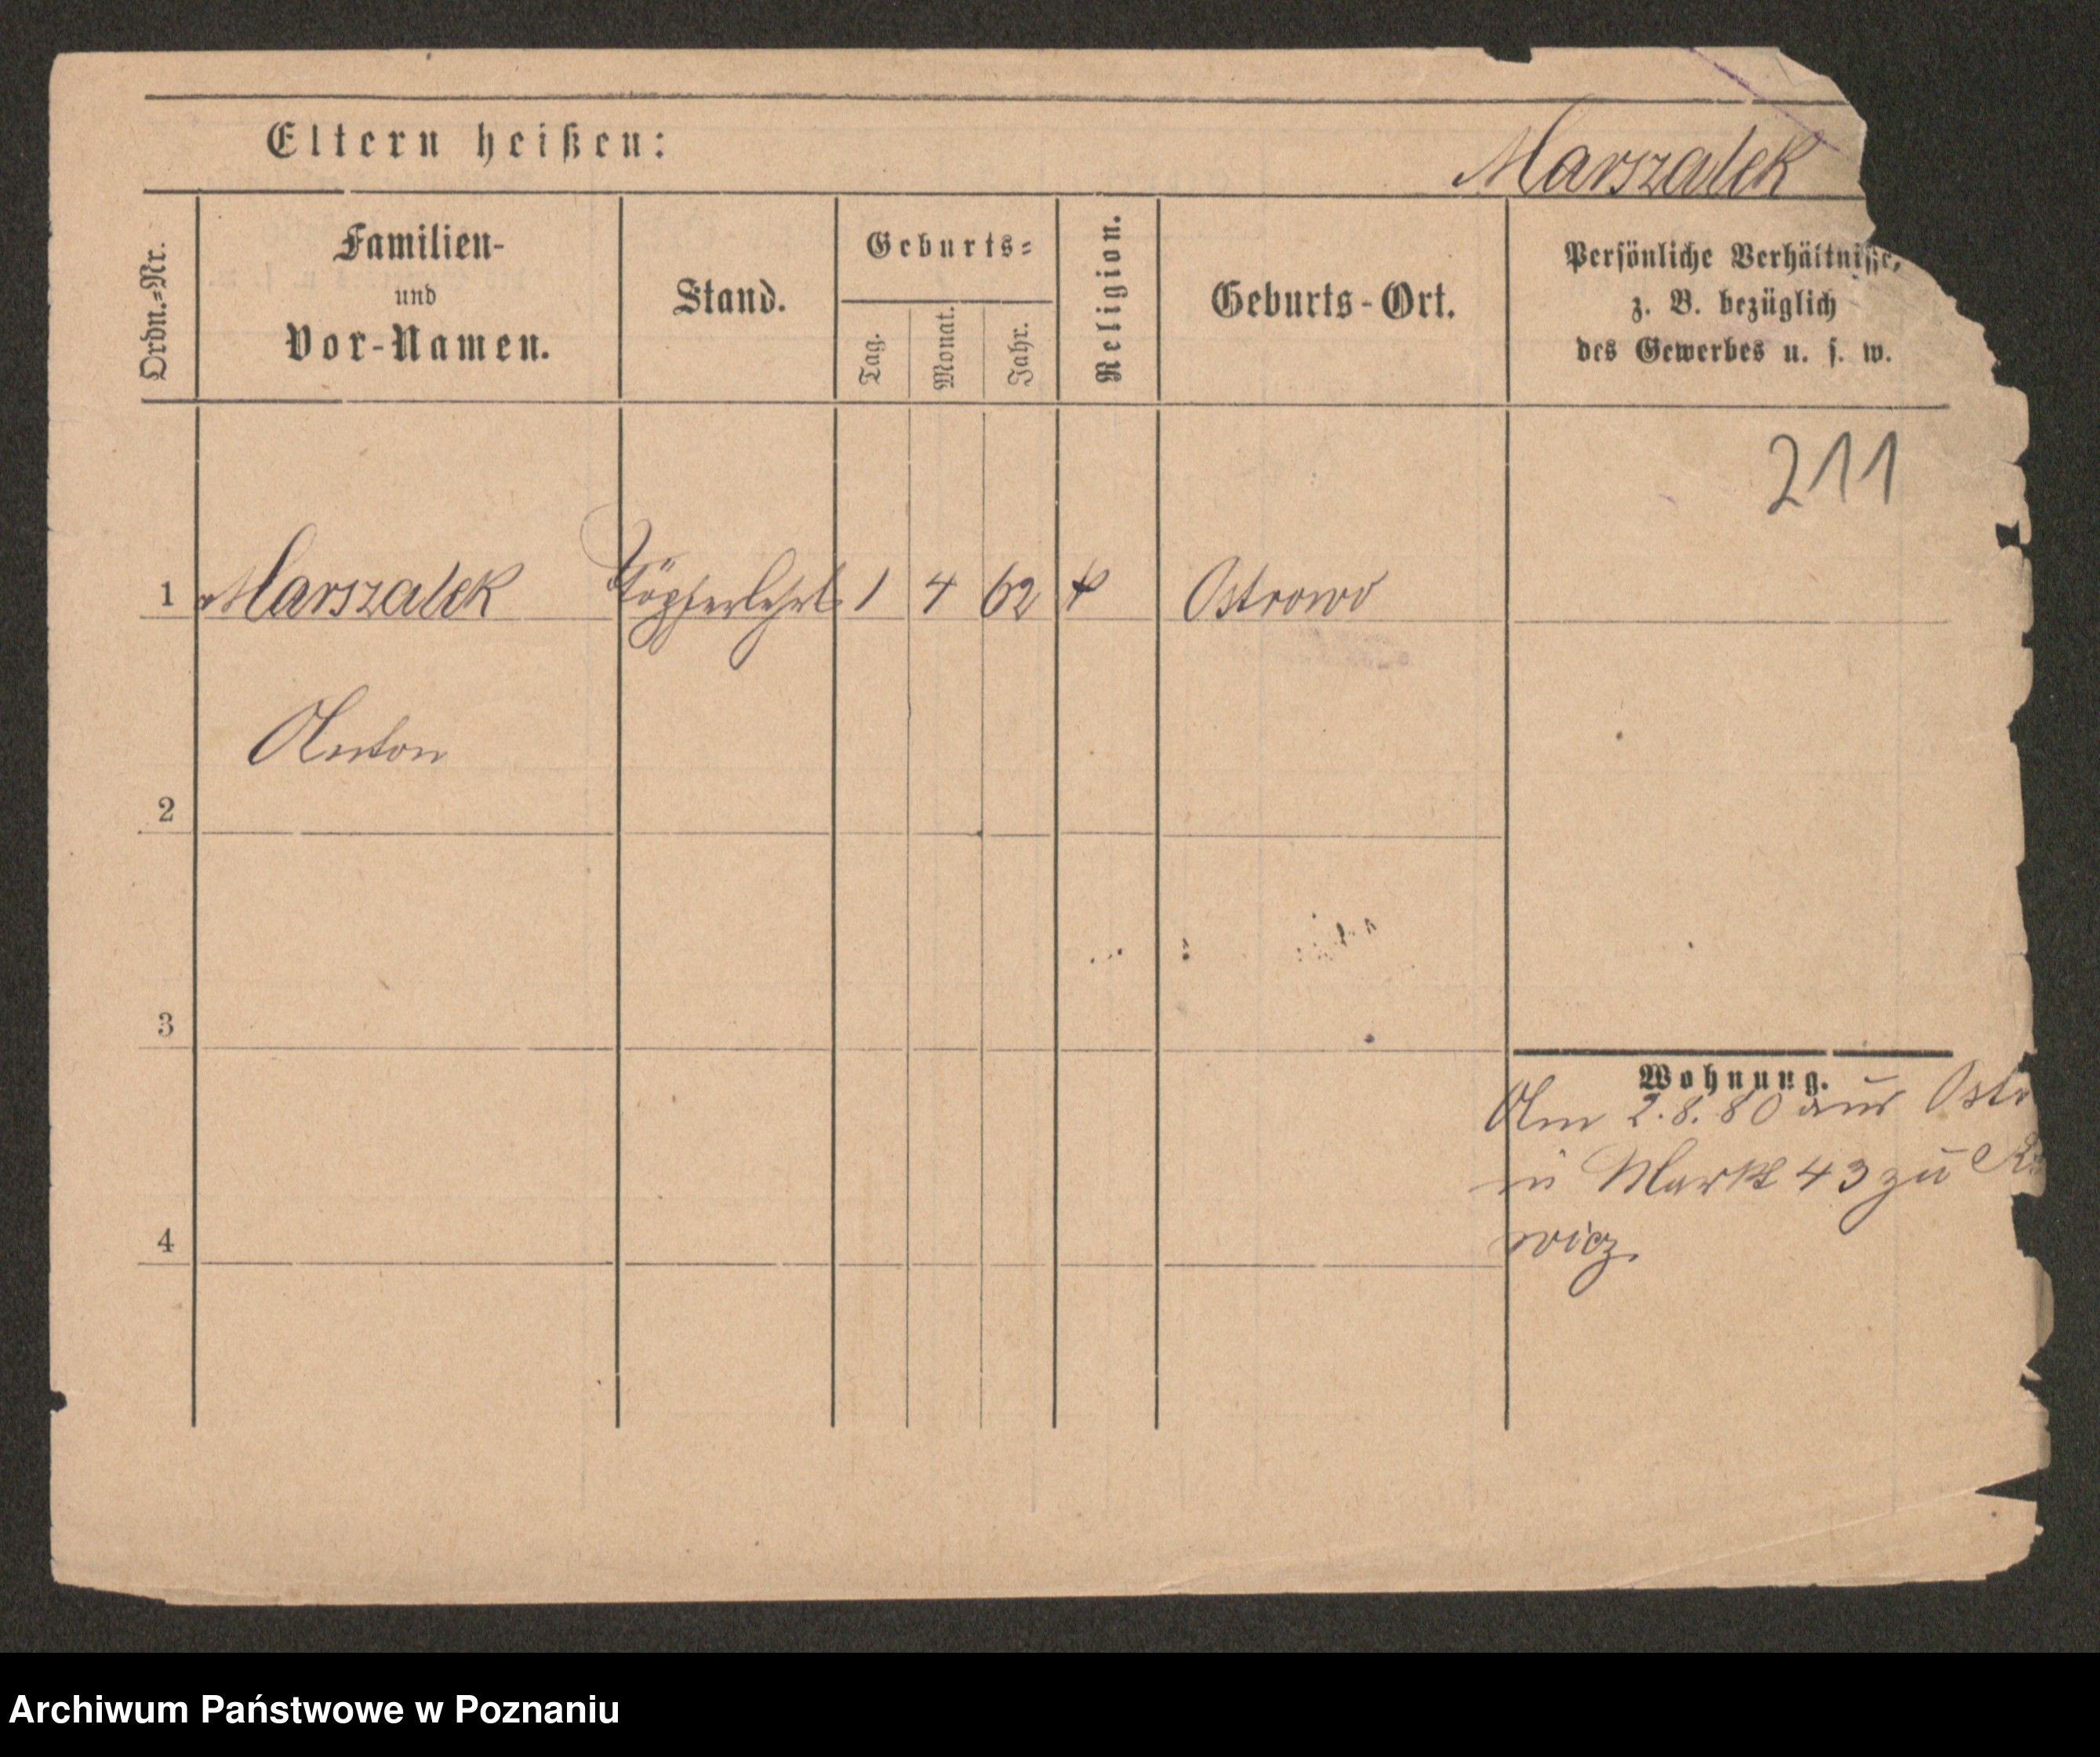 Eltern heißen:
Marszalek
Ordn.=Nr.
Familien-
und
Vor-Namen.
Stand.
Geburts=
Tag.
Monat.
Jahr.
Religion.
Geburts-Ort.
Persönliche Verhältnisse,
z. B. bezüglich
des Gewerbes u. s. w.
211
1 Marszalek Töpferlehrl 1 4 62 Ostrowo
Anton
2
3
4
Wohnung.
Am 2.8.80 aus Ostr
in Markt 43 zu
wicz
Archiwum Państwowe w Poznaniu